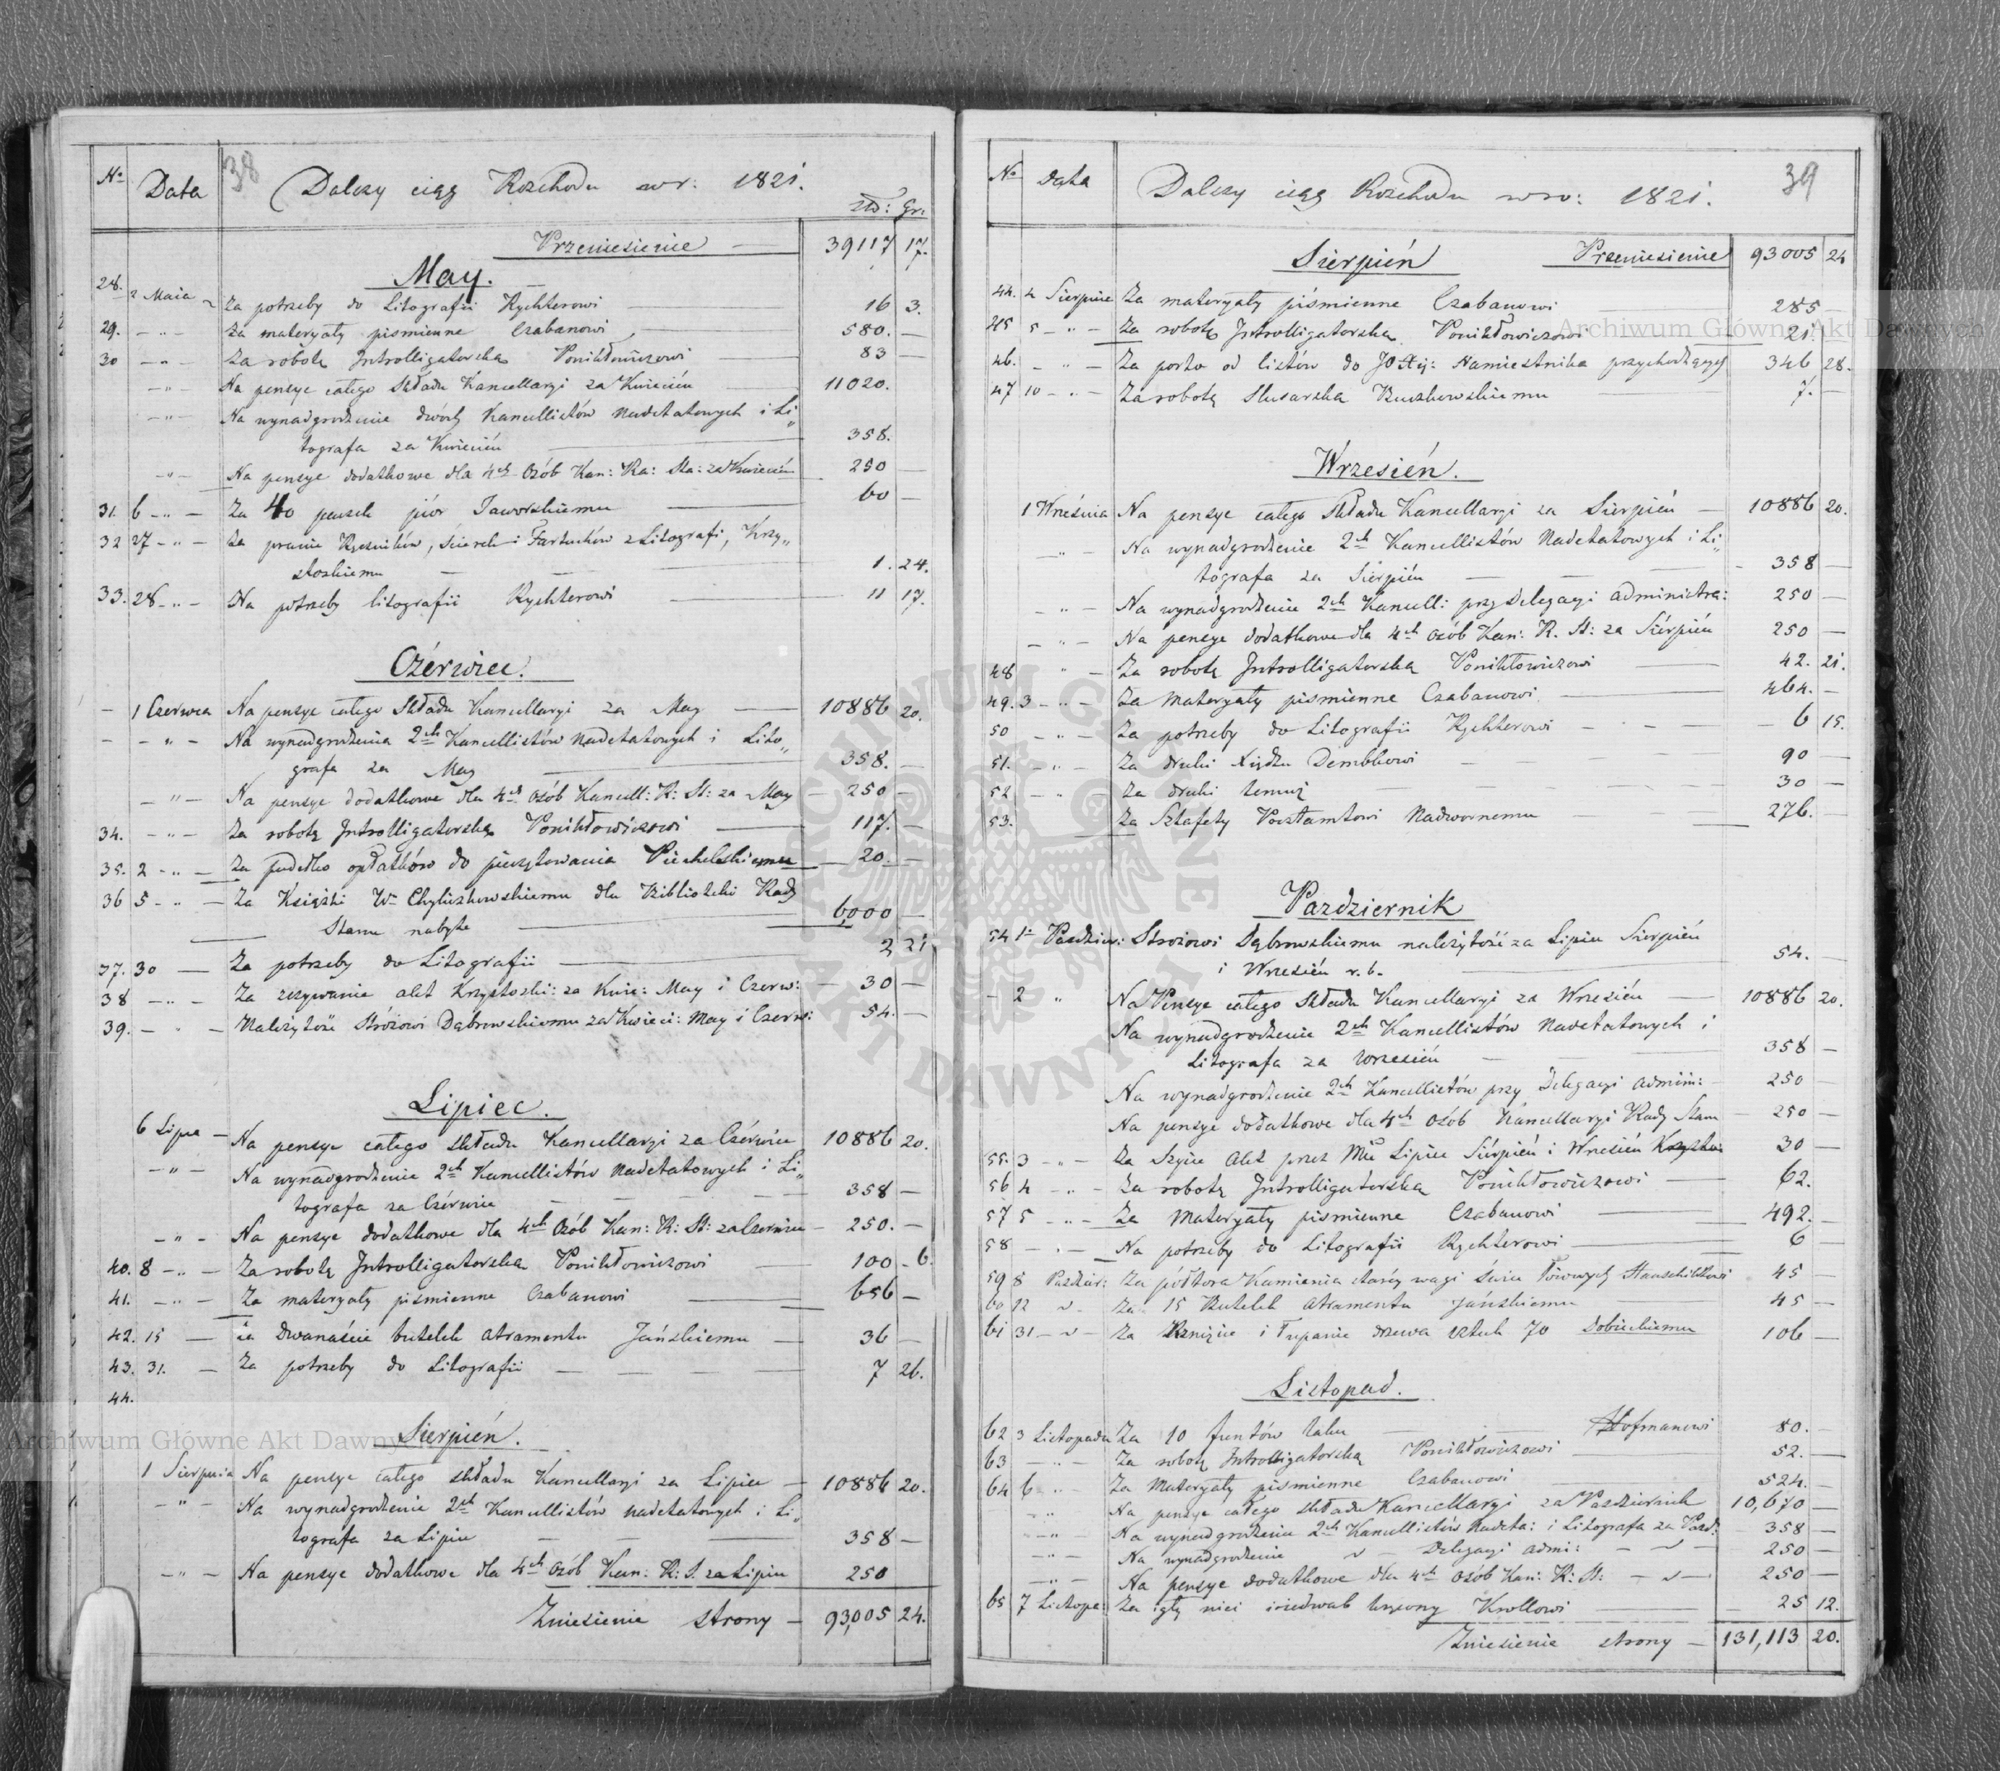 38
No Data Dalszy ciąg Rozchodu w r: 1821. Złp: Gr:
Przeniesienie — 39117 17.
May.
28. 2 Maia Za potrzeby do Litografii Rychterowi 16 3.
29. — " — Za materyały pismienne Czabanowi 580. —
30 — " — Za robotę Introlligatorską Ponikłowiczowi 83 —
— " — Na pensye całego Składu Kancellaryi za Kwiecień 11020.
— " — Na wynadgrodzenie dwóch Kancellistów Nadetatowych i Li„
tografa za Kwiecień 358.
— " — Na pensye dodatkowe dla 4ch Osób Kan: Ra: Sta: za Kwiecień 250 —
31. 6 — " — Za 40 penzch piór Jaworskiemu 60 —
32 27 — " — Za pranie Ręczników, Ścierek i Fartuchów z Litografi, Krzy„
stoskiemu 1. 24.
33. 28 — " — Na potrzeby litografii Rychterowi 11 17.
Czérwiec.
— 1 Czerwca Na pensye całego Składu Kancellaryi za May 10886 20.
— — " — Na wynadgrodzenia 2ch Kancellistów Nadetatowych i Lito„
grafa za May 358. —
— " — Na pensye dodatkowe dla 4ch Osób Kancell: R: St: za May — 250 —
34. — " — Za robotę Introlligatorską Ponikłowiczowi 117. —
35. 2 — " — Za pudełko opłatków do pieczętowania 20. —
36 5 — " — Za Książki Wu Chyliczkowskiemu dla Biblioteki Rady
Stanu nabyte 6000 —
37. 30 — Za potrzeby do Litografii 2 21
38 — " — Za zszywanie akt Krzystoski: za Kwie: May i Czerw: — 30 —
39. — " — Należytość Stróżowi Dąbrowskiemu za Kwieci: May i Czerw: 54. —
Lipiec.
6 Lipca — Na pensye całego składu Kancellaryi za Czérwiec 10886 20.
— " — Na wynadgrodzenie 2ch Kancellistów Nadetatowych i Li„
tografa za Czérwiec 358 —
— " — Na pensye dodatkowe dla 4ch Osób Kan: R: St: za Czerwiec — 250. —
40. 8 — " — Za robotę Introlligatorską Ponikłowiczowi 100 — 6.
41. — " — Za materyały pismienne Czabanowi 656 —
42. 15 — za dwanaście butelek atramentu Jańskiemu — 36 —
43. 31. — Za potrzeby do Litografii 7 26.
44.
Sierpień.
1 Sierpnia Na pensye całego składu Kancellaryi za Lipiec — 10886 20.
— " — Na wynadgrodzenie 2ch Kancellistów nadetatowych i Li„
tografa za Lipiec 358 —
— " — Na pensye dodatkowe dla 4ch Osób Kan: R: S. za Lipiec 250
Zniesienie strony — 93,005 24.
39
No Data Dalszy ciąg Rozchodu w ro: 1821.
Sierpień Przeniesienie 93005 24
44. 4 Sierpnia Za materyały piśmienne Czabanowi 285 —
45 5 — " — Za robotę Introlligatorską Ponikłowiczowi 21. —
46. — " — Za porto od listów do JO Xcj: Namiestnika przychodzących 346 28.
47 10 — " — Za robotę Slusarską Buczkowskiemu 7. —
Wrzesień.
1 Września Na pensye całego Składu Kancellaryi za Sierpień — 10886 20.
— " — Na wynadgrodzenie 2ch Kancellistów Nadetatowych i Li„
tografa za Sierpień 358 —
— " — Na wynadgrodzenie 2ch Kancell: przy Delegacyi administra: 250 —
— " — Na pensye dodatkowe dla 4ch osób Kan: R. St: za Siérpień 250 —
48 " — Za robotę Introlligatorską Ponikłowiczowi 42. 21.
49. 3 — " — Za Materyały piśmienne Czabanowi 464. —
50 — " — Za potrzeby do Litografii Rychterowi 6 15.
51. — " — Za druki Xiędzu Dembkowi 90 —
52 — " Za druki temuż 30 —
53. Za Sztafety Pocztamtowi Nadwornemu 276. —
Pazdziernik
54 1o Pazdzier: Stróżowi Dąbrowskiemu należytość za Lipiec Sierpień
i Wrzesień r. b. 54. —
— 2 " Na Pensye całego składu Kancellaryi za Wrzesień 10886 20.
Na wynadgrodzenie 2ch Kancellistów Nadetatowych i
Litografa za Wrzesień 358 —
Na wynadgrodzenie 2ch Kancellistów przy Delegacyi admini: 250 —
Na pensye dodatkowe dla 4ch osób Kancellaryi Rady Stanu — 250 —
55. 3 — " — Za Szycie Akt przez Mce Lipiec Siérpień i Wrzesień 30 —
56 4 — " — Za robotę Introlligatorską Ponikłowiczowi 62.
57 5 — " — Za Materyały pismienne Czabanowi 492. —
58 — " — Na potrzeby do Litografii Rychterowi 6 —
59 8 Pazdzier: Za półtora Kamienia starey wagi Świec Łojowych 45 —
60 12 " Za 15 Butelek Atramentu Jańskiemu 45 —
61 31 — " — Za Rznięcie i Łupanie drzewa sztuk 70 Sobieckiemu 106 —
Listopad.
62 3 Listopada Za 10 funtów laku Hofmanowi 80.
63 — " — Za robotę Introlligatorską Ponikłowiczowi 52. —
64 6 — " — Za Materyały pismienne Czabanowi 524. —
— " Na pensye całego składu Kancellaryi za Pazdziernik 10,670 —
— " — Na wynadgrodzenie 2ch Kancellistów Nadeta: i Litografa za Pazd: 358 —
— " — Na wynadgrodzenie " — Delegacyi admi: — " — 250 —
— " — Na pensye dodatkowe dla 4ch osób Kan: R: St: — " — 250 —
65 7 Listopa: Za igły nici i iedwab kręcony Krollowi 25 12.
Zniesienie strony — 131,113 20.
Archiwum Główne Akt Dawnych
Archiwum Główne Akt Dawnych
ARCHIWUM GŁÓWNE AKT DAWNYCH